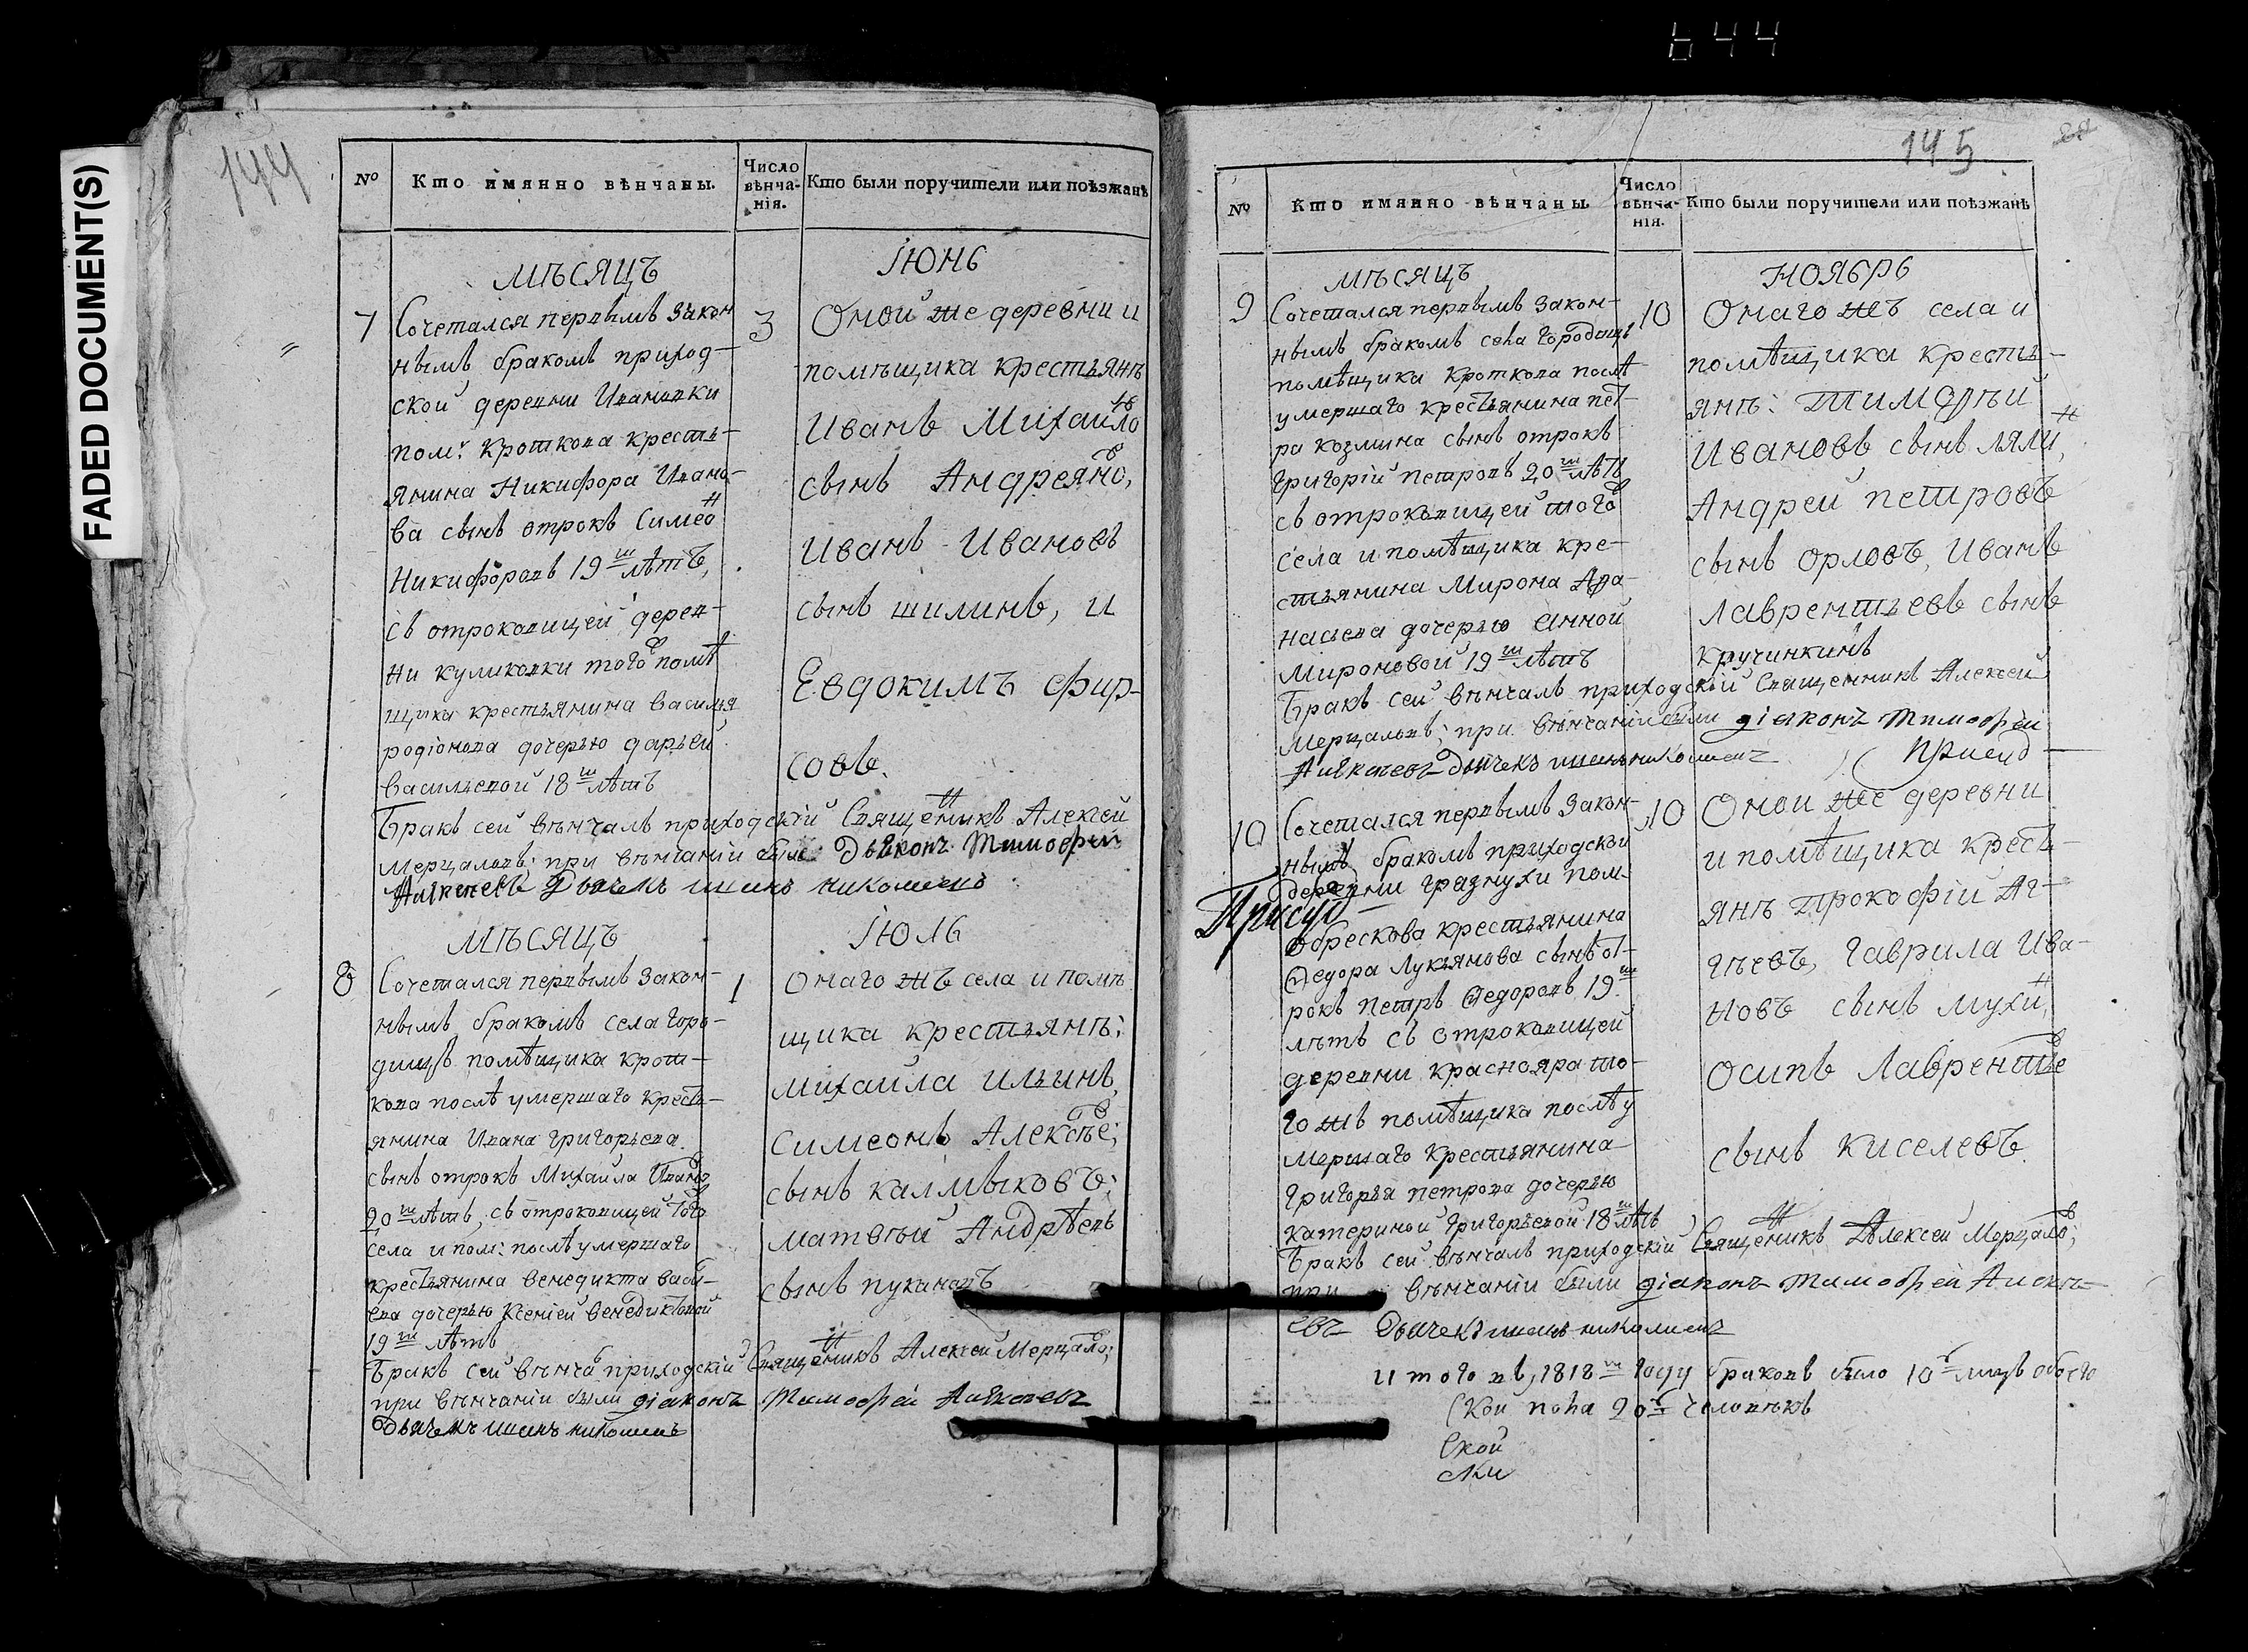 644
FADED DOCUMENT(S)
144
№
Кто имянно вѣнчаны.
Число вѣнча-нія.
Кто были поручители или поѣзжанѣ
мѣсяцъ
Іюнь
7
Сочетался первымъ закон
нымъ бракомъ приход-
ской деревни Ивановки
пом: Кроткова кресть-
янина Никифора Ивано-
ва сынъ отрокъ Симеон
Никифоровъ 19ти лѣтъ,
съ отроковицей дерев-
ни куликовки того помѣ
щика крестьянина василья
родіонова дочерью дарьей
васильевой 18ти лѣтъ
3
Оной же деревни и
помѣщика крестьянѣ
Иванъ Михайловъ
сынъ Андреяновъ,
Иванъ Ивановъ
сынъ шилинъ, и
Евдокимъ фир-
совъ.
Бракъ сей вѣнчалъ приходскій Священникъ Алексей
Мерцаловъ; при вѣнчаніи были Дьяконъ Тимофей
Алексеевъ
мѣсяцъ
Іюль
8
Сочетался первымъ закон-
нымъ бракомъ села горо-
дищъ помѣщика крот-
кова послѣ умершаго кресть-
янина Ивана григорьева
сынъ отрокъ Михайла Ивановъ
20ти лѣтъ, съ отроковицей того
села и пом: послѣ умершаго
крестьянина венедикта васи-
ева дочерью Ксеніей венедиктовой
19ти лѣтъ
1
Онаго жъ села и помѣ
щика крестьянѣ:
михайла ильинъ,
Симеонъ Алексѣевъ;
сынъ калмыковъ;
матвѣй Андрѣевъ
сынъ пукановъ
Бракъ сей вѣнчалъ приходскій Священникъ Алексей Мерцаловъ;
при вѣнчаніи были діаконъ Тимофей Алексеевъ
145
№
Кто имянно вѣнчаны.
Число вѣнча-нія.
Кто были поручители или поѣзжанѣ
мѣсяцъ
Ноябрь
9
Сочетался первымъ закон-
нымъ бракомъ села городищъ
помѣщика кроткова послѣ
умершаго крестьянина пет-
ра козмина сынъ отрокъ
григорій петровъ 20ти лѣтъ
съ отроковицей того
села и помѣщика кре-
стьянина Мирона Афа-
насьева дочерью Анной
Мироновой 19ти лѣтъ
10
Онаго жъ села и
помѣщика кресть-
янѣ: тимофѣй
Ивановъ сынъ лялин,
Андрей петровъ
сынъ орловъ, Иванъ
лаврентьевъ сынъ
кручинкинъ
Бракъ сей вѣнчалъ приходскій Священникъ Алексей
Мерцаловъ; при вѣнчаніи были діаконъ Тимофей
Алексеевъ
10
Сочетался первымъ закон-
нымъ бракомъ приходской
деревни грязнухи пом-
обрескова крестьянина
Федора Лукьянова сынъ от-
рокъ петръ Федоровъ 19ти
лѣтъ съ отроковицей
деревни краснояра то-
го жъ помѣщика послѣ у
мершаго крестьянина
григорья петрова дочерью
катериной григорьевой 18ти лѣтъ
10
Оной же деревни
и помѣщика кресть-
янѣ прокофій Аг-
гѣевъ, гаврила Ива-
новъ сынъ мухин,
осипъ лаврентьевъ
сынъ киселевъ.
Бракъ сей вѣнчалъ приходскій Священникъ Алексей Мерцаловъ;
при вѣнчаніи были діаконъ Тимофей Алексе-
евъ
итого въ 1818м году браковъ было 10ть лицъ обоего
20ть человѣкъ